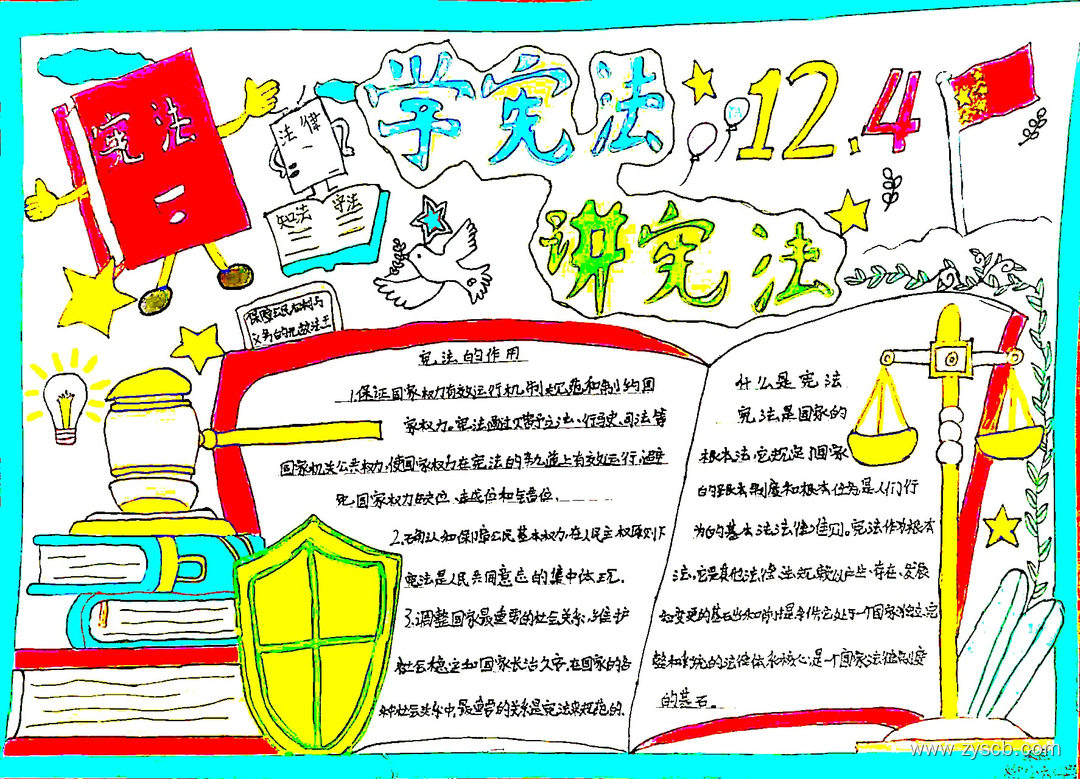 学宪法
12.4
讲宪法
宪法
法律
知法 守法
保障公民权利与
义务的无数法王
宪法的作用
1.保证国家权力有效运行机制规范和制约国
家权力。宪法通过授予立法、行政、司法等
国家机关公共权力,使国家权力在宪法的轨道上有效运行,避
免国家权力缺位、越位和错位,
2.确认和保障公民基本权力,在人民主权原则下
宪法是人民共同意志的集中体现.
3.调整国家最重要的社会关系,维护
社会稳定和国家长治久安,在国家的各
种社会关系中,最重要的关系是宪法来规范的.
什么是宪法
宪法是国家的
根本法,它规定了国家
的根本制度和根本任务是人们行
为的基本法法律准则。宪法作为根本
法,它是其他法律、法规赖以产生、存在、发展
和变更的基础和前提条件它处于一个国家独立、完
整和系统的法律体系核心,是一个国家法律制度
的基石。
www.zyscb.com